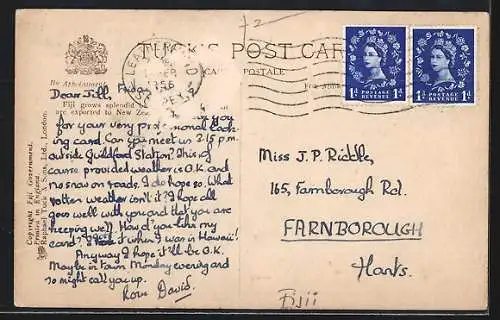 £2
TUCK'S POST CARD
CARTE POSTALE
By Appointment
Dear Jill,
Fiji grows splendid
are exported to New Zea
you
for your very professional look-
ing card. Can you meet us 2.15 p.m.
outside Guildford Station? This of
course provided weather is O.K. and
no snow on roads. I do hope so. What
rotten weather isn't it? I hope all
goes well with you and that you are
keeping well. How d'you like my
card? I got it when I was in Hawaii!
Anyway I hope it'll be O.K.
Maybe in Town Monday evening and
so might call you up.
Love David.
Copyright Fiji Government.
Printed in England
Raphael Tuck & Sons, Ltd., London.
1D POSTAGE REVENUE 1D
1D POSTAGE REVENUE 1D
Miss J.P. Riddle,
165, Farnborough Rd.
FARNBOROUGH
Hants.
Fijii